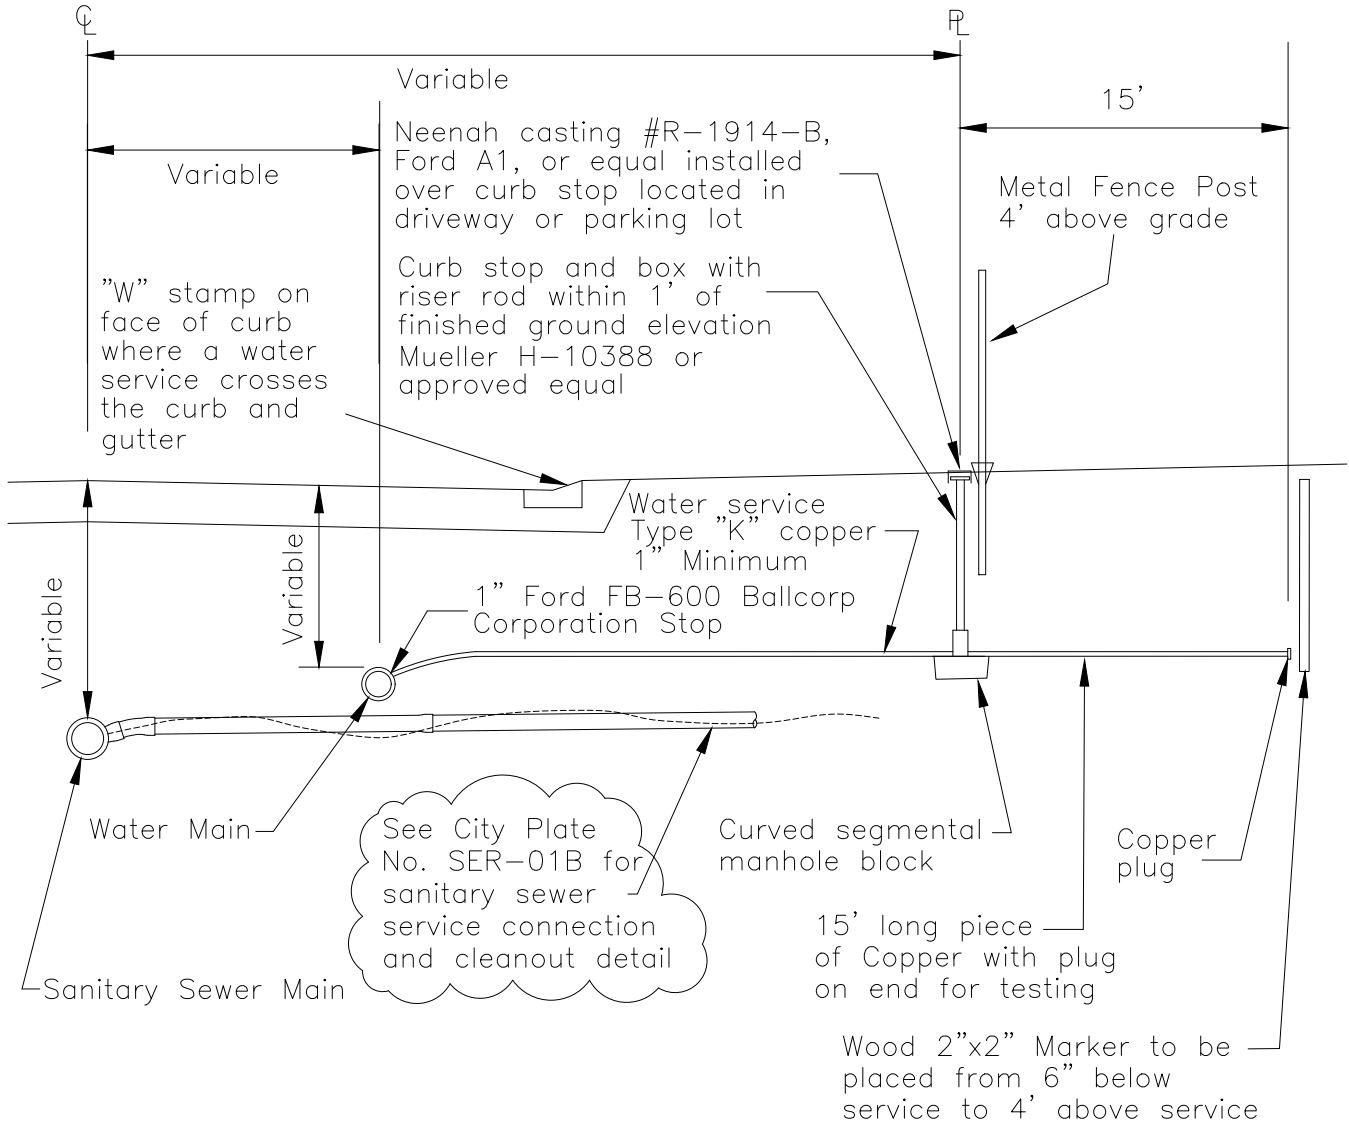 ℄
PL
Variable
15’
Variable
Neenah casting #R–1914–B,
Ford A1, or equal installed
over curb stop located in
driveway or parking lot
Metal Fence Post
4’ above grade
Curb stop and box with
riser rod within 1’ of
finished ground elevation
Mueller H–10388 or
approved equal
”W” stamp on
face of curb
where a water
service crosses
the curb and
gutter
Water service
Type ”K” copper
1” Minimum
Variable
Variable
1” Ford FB–600 Ballcorp
Corporation Stop
Water Main
See City Plate
No. SER–01B for
sanitary sewer
service connection
and cleanout detail
Curved segmental
manhole block
Copper
plug
15’ long piece
of Copper with plug
on end for testing
Sanitary Sewer Main
Wood 2”x2” Marker to be
placed from 6” below
service to 4’ above service